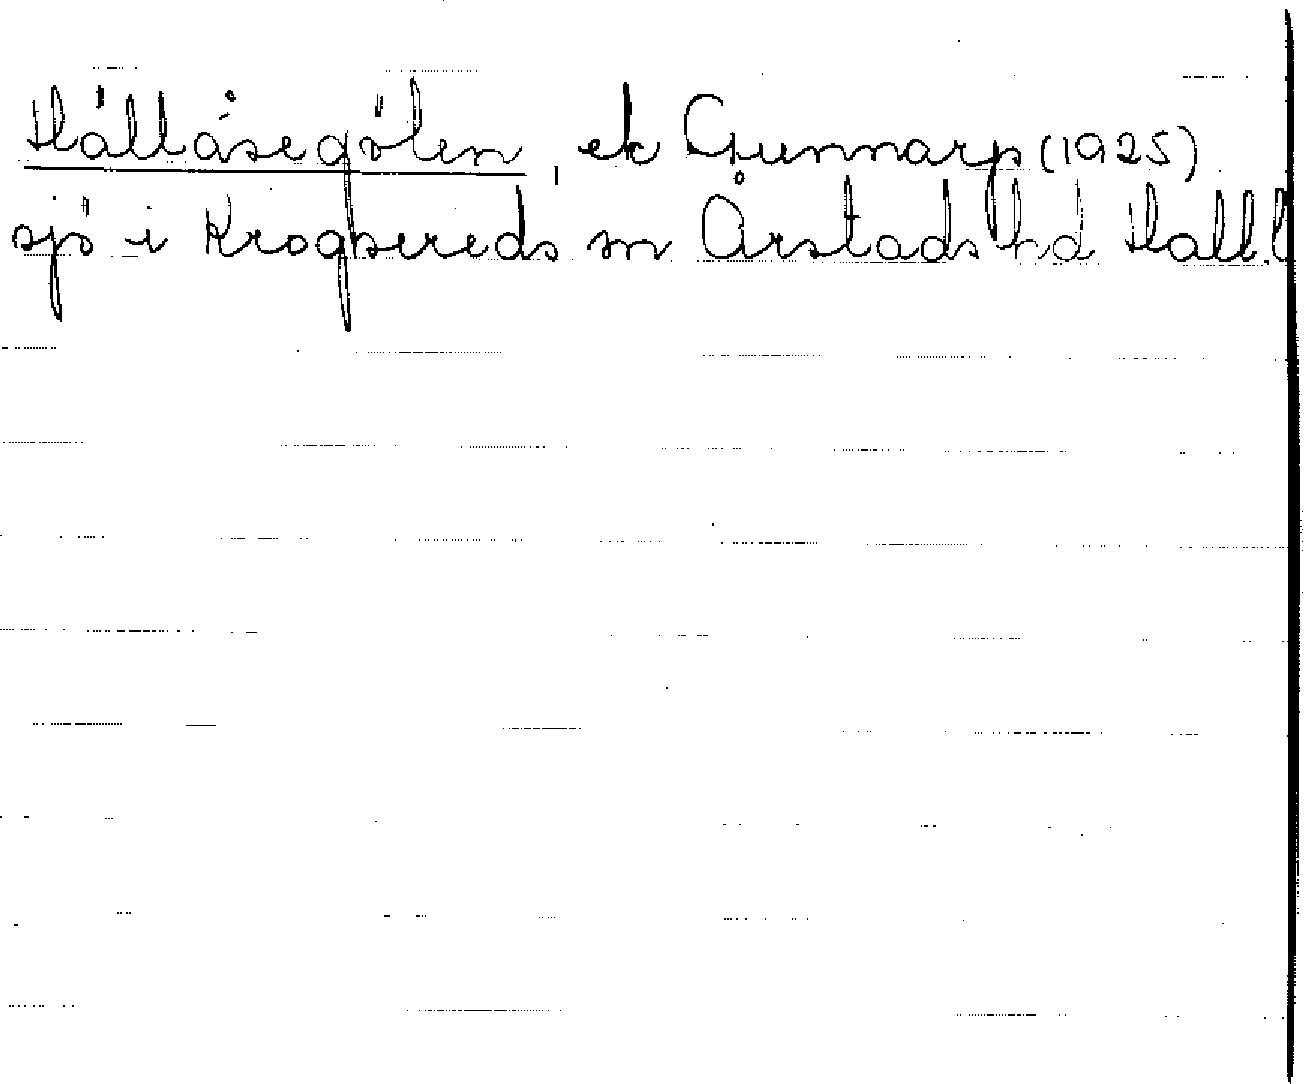 Hällåsegölen, ek Gunnarp (1925)
sjö i Krogsereds sn Årstads hd Hall.l